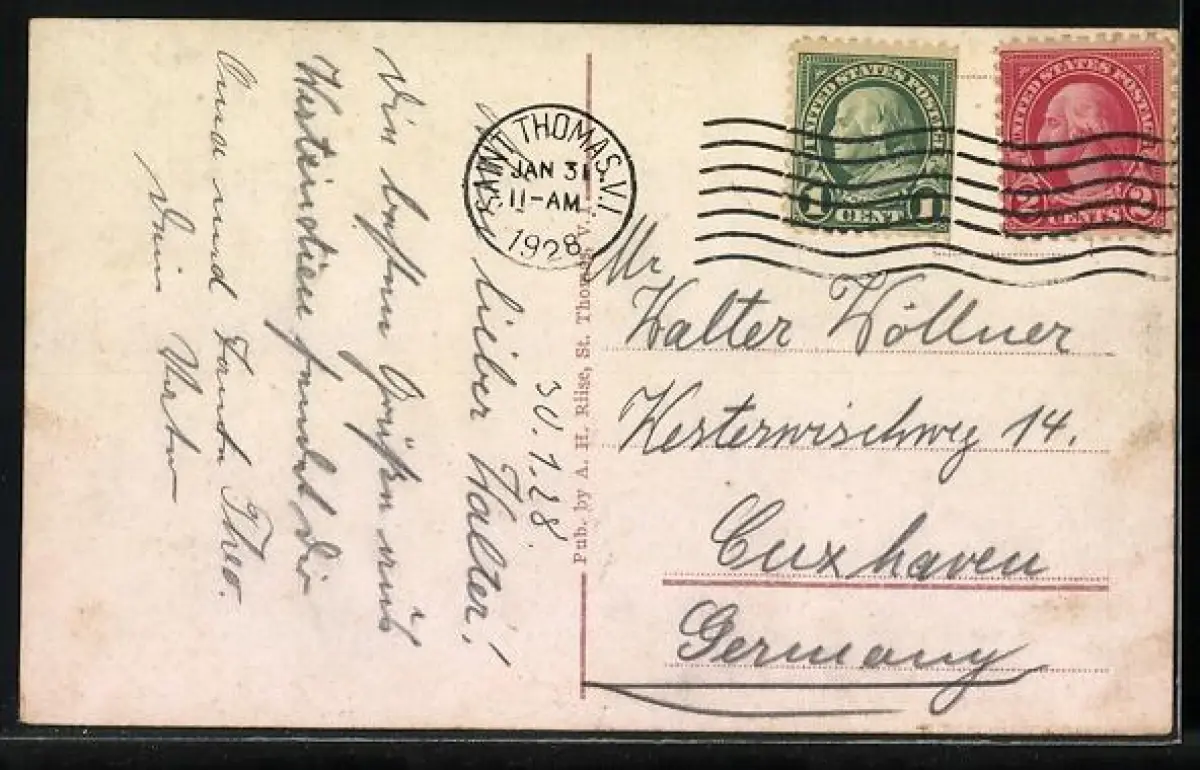 30.1.28.
Mein lieber Walter!
Die besten Grüße aus
Westindien sendet Dir
Oma und Tante Theo.
Dein Vater
Pub. by A. H. Riise, St. Thomas V. I.
SAINT THOMAS, V.I.
JAN 31
11-AM
1928
UNITED STATES POSTAGE
1 CENT 1
UNITED STATES POSTAGE
2 CENTS 2
Mr
Walter Wöllner
Westerwischweg 14.
Cuxhaven
Germany